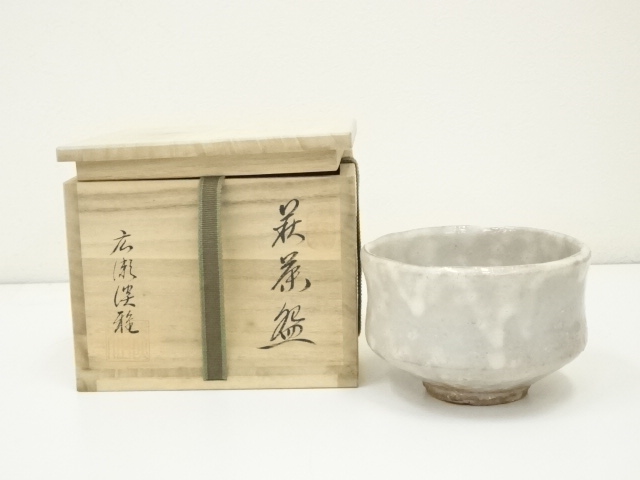 萩茶盌
広瀬淡雅